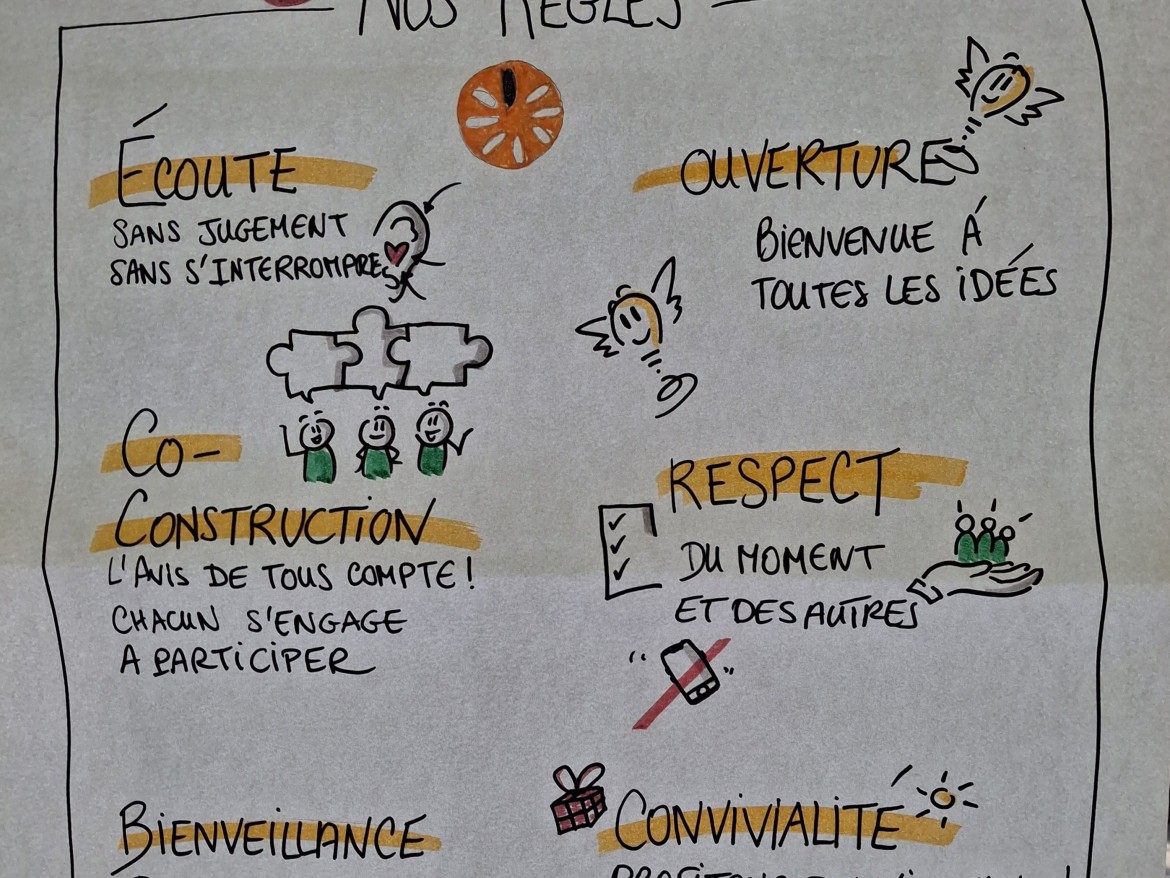 NOS RÈGLES
ÉCOUTE
SANS JUGEMENT
SANS S'INTERROMPRE
CO-
CONSTRUCTION
L'AVIS DE TOUS COMPTE!
CHACUN S'ENGAGE
A PARTICIPER
BIENVEILLANCE
OUVERTURE
BIENVENUE À
TOUTES LES IDÉES
RESPECT
DU MOMENT
ET DES AUTRES
CONVIVIALITÉ